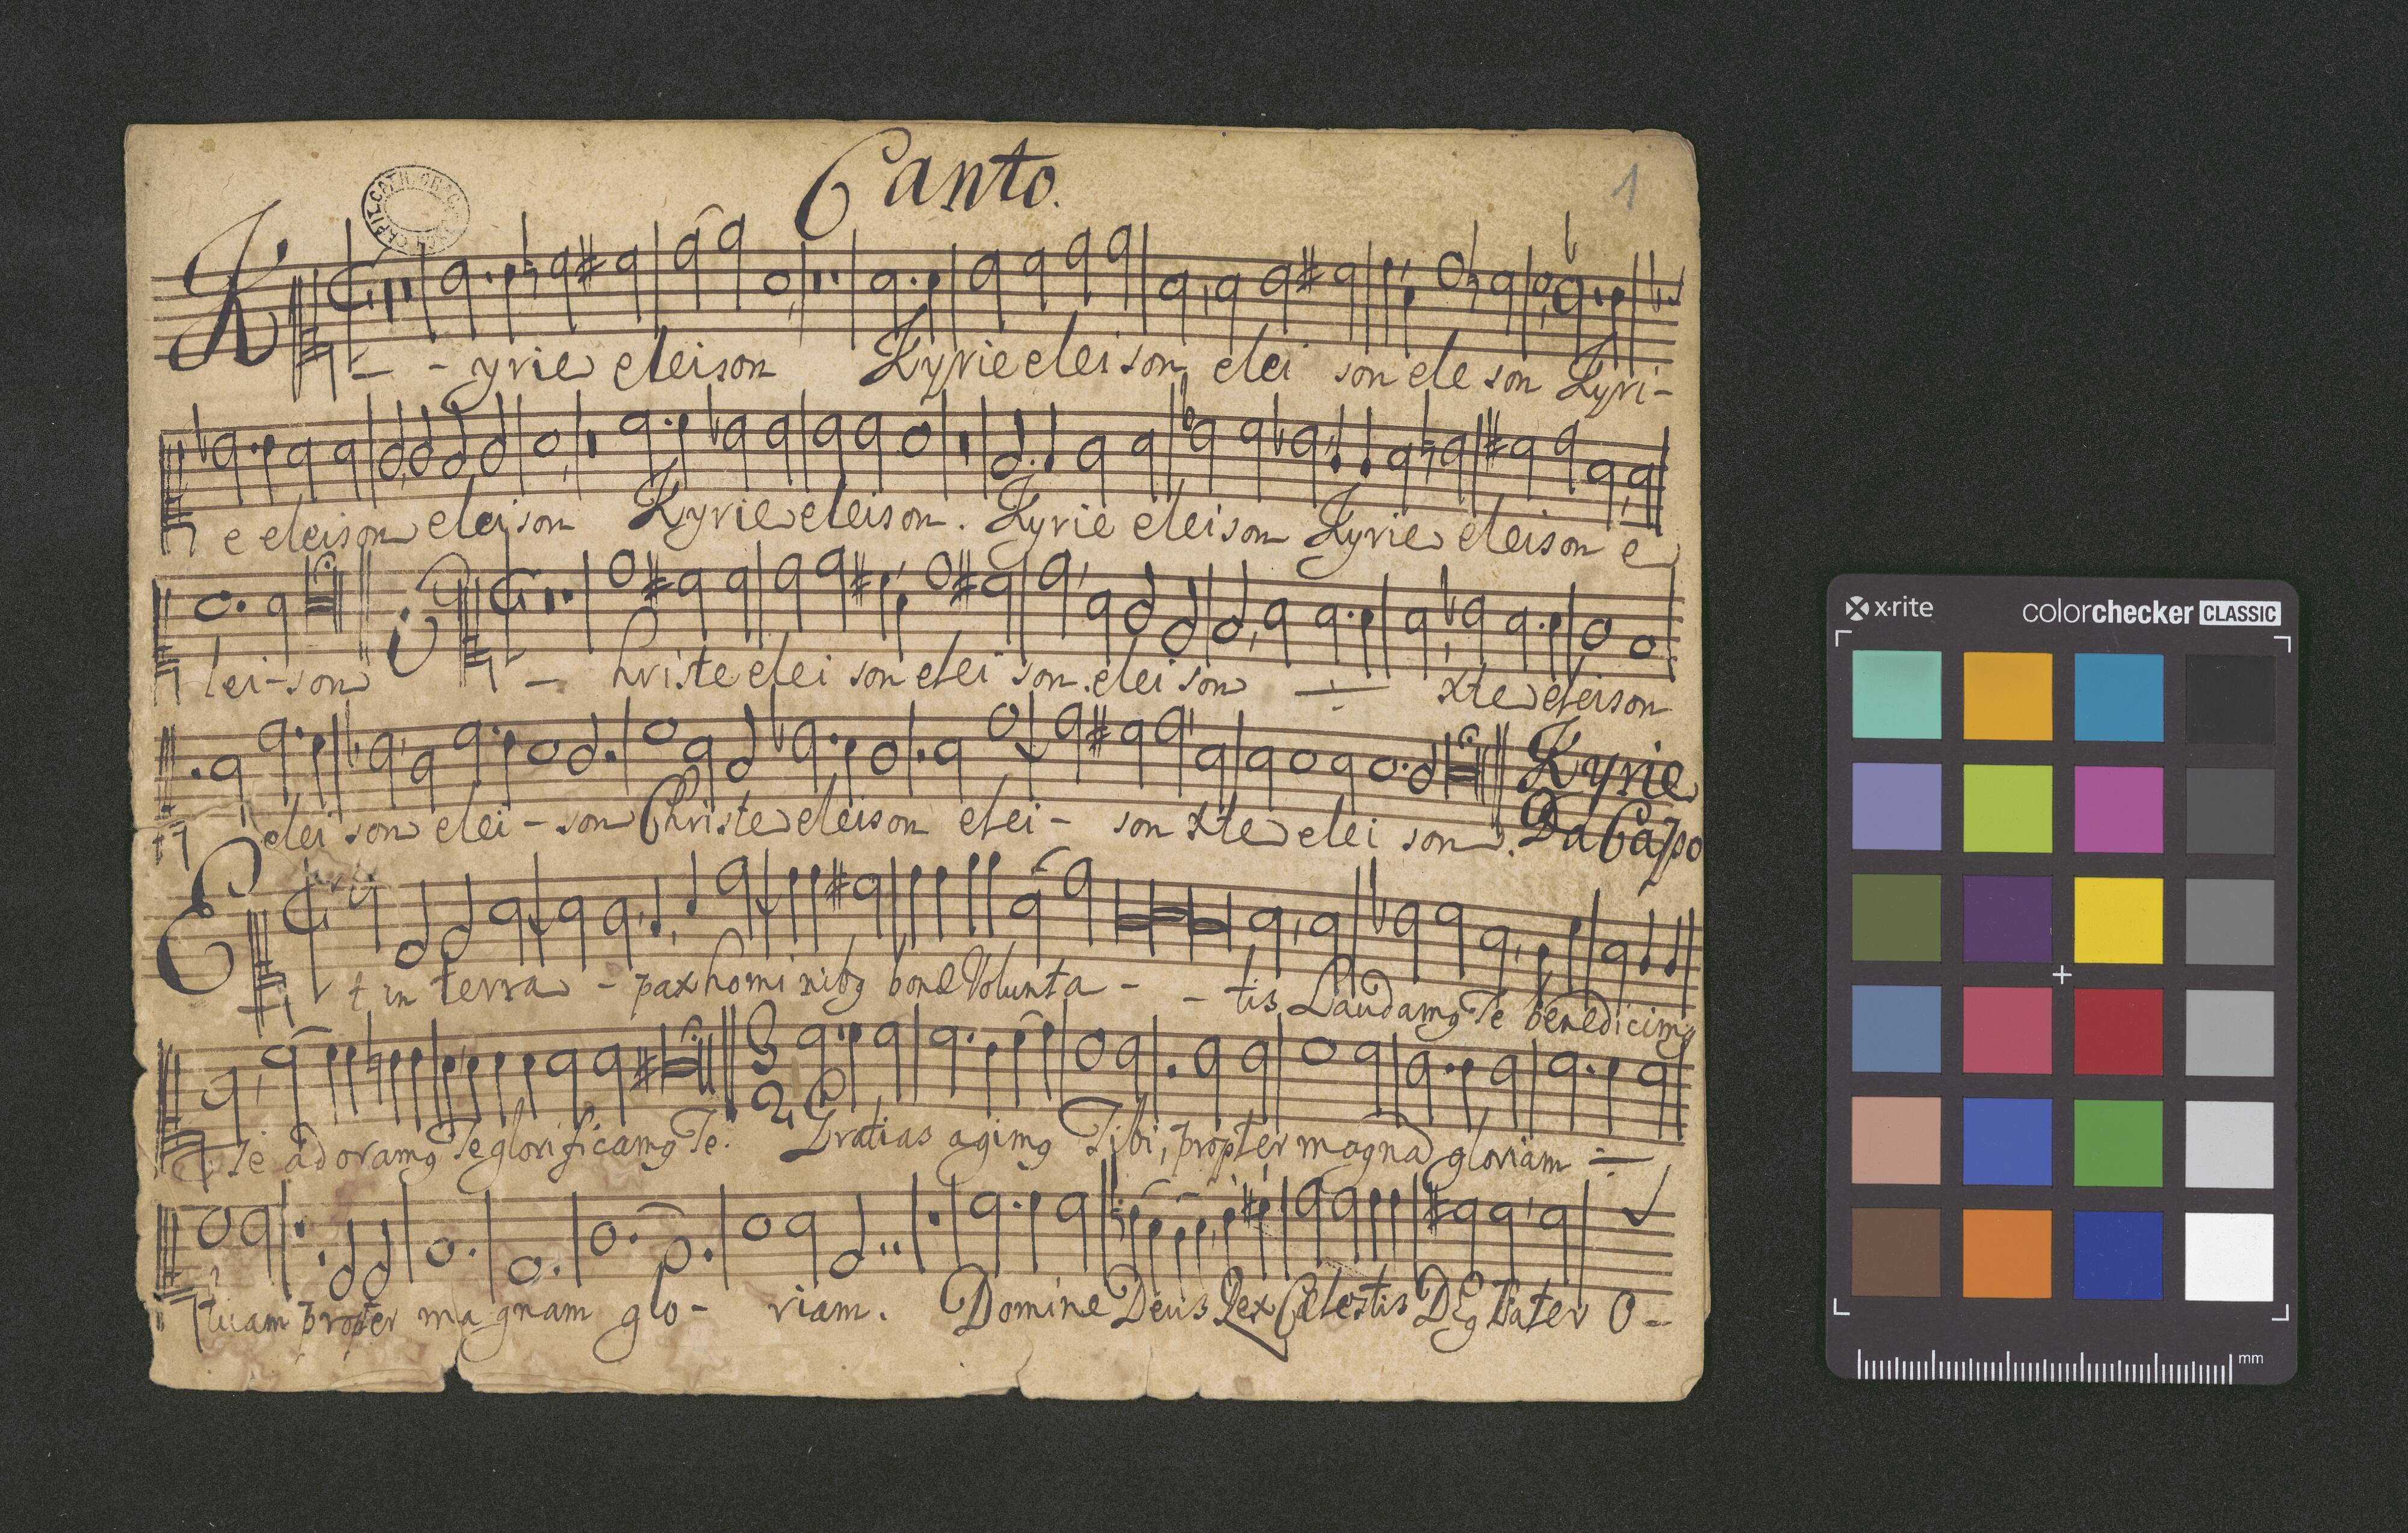 Canto.
1
K - - yrie eleison Kyrie eleison, elei son ele son Kyri-
e eleison eleison Kyrie eleison. Kyrie eleison Kyrie eleison e
lei-son C - hriste elei son elei son. elei son xte eleison
elei son elei - son Christe eleison elei - son xte elei son. Kyrie
Da Capo
Et in terra - pax hominibꝫ bone Volunta - - tis Laudamꝯ Te benedicimꝯ
Te adoramꝯ Te glorificamꝯ Te. Gratias agimꝯ Tibi, propter magna gloriam
tuam propter magnam glo - riam. Domine Deus Rex Celestis DEꝯ Pater O -
x·rite colorchecker CLASSIC
mm